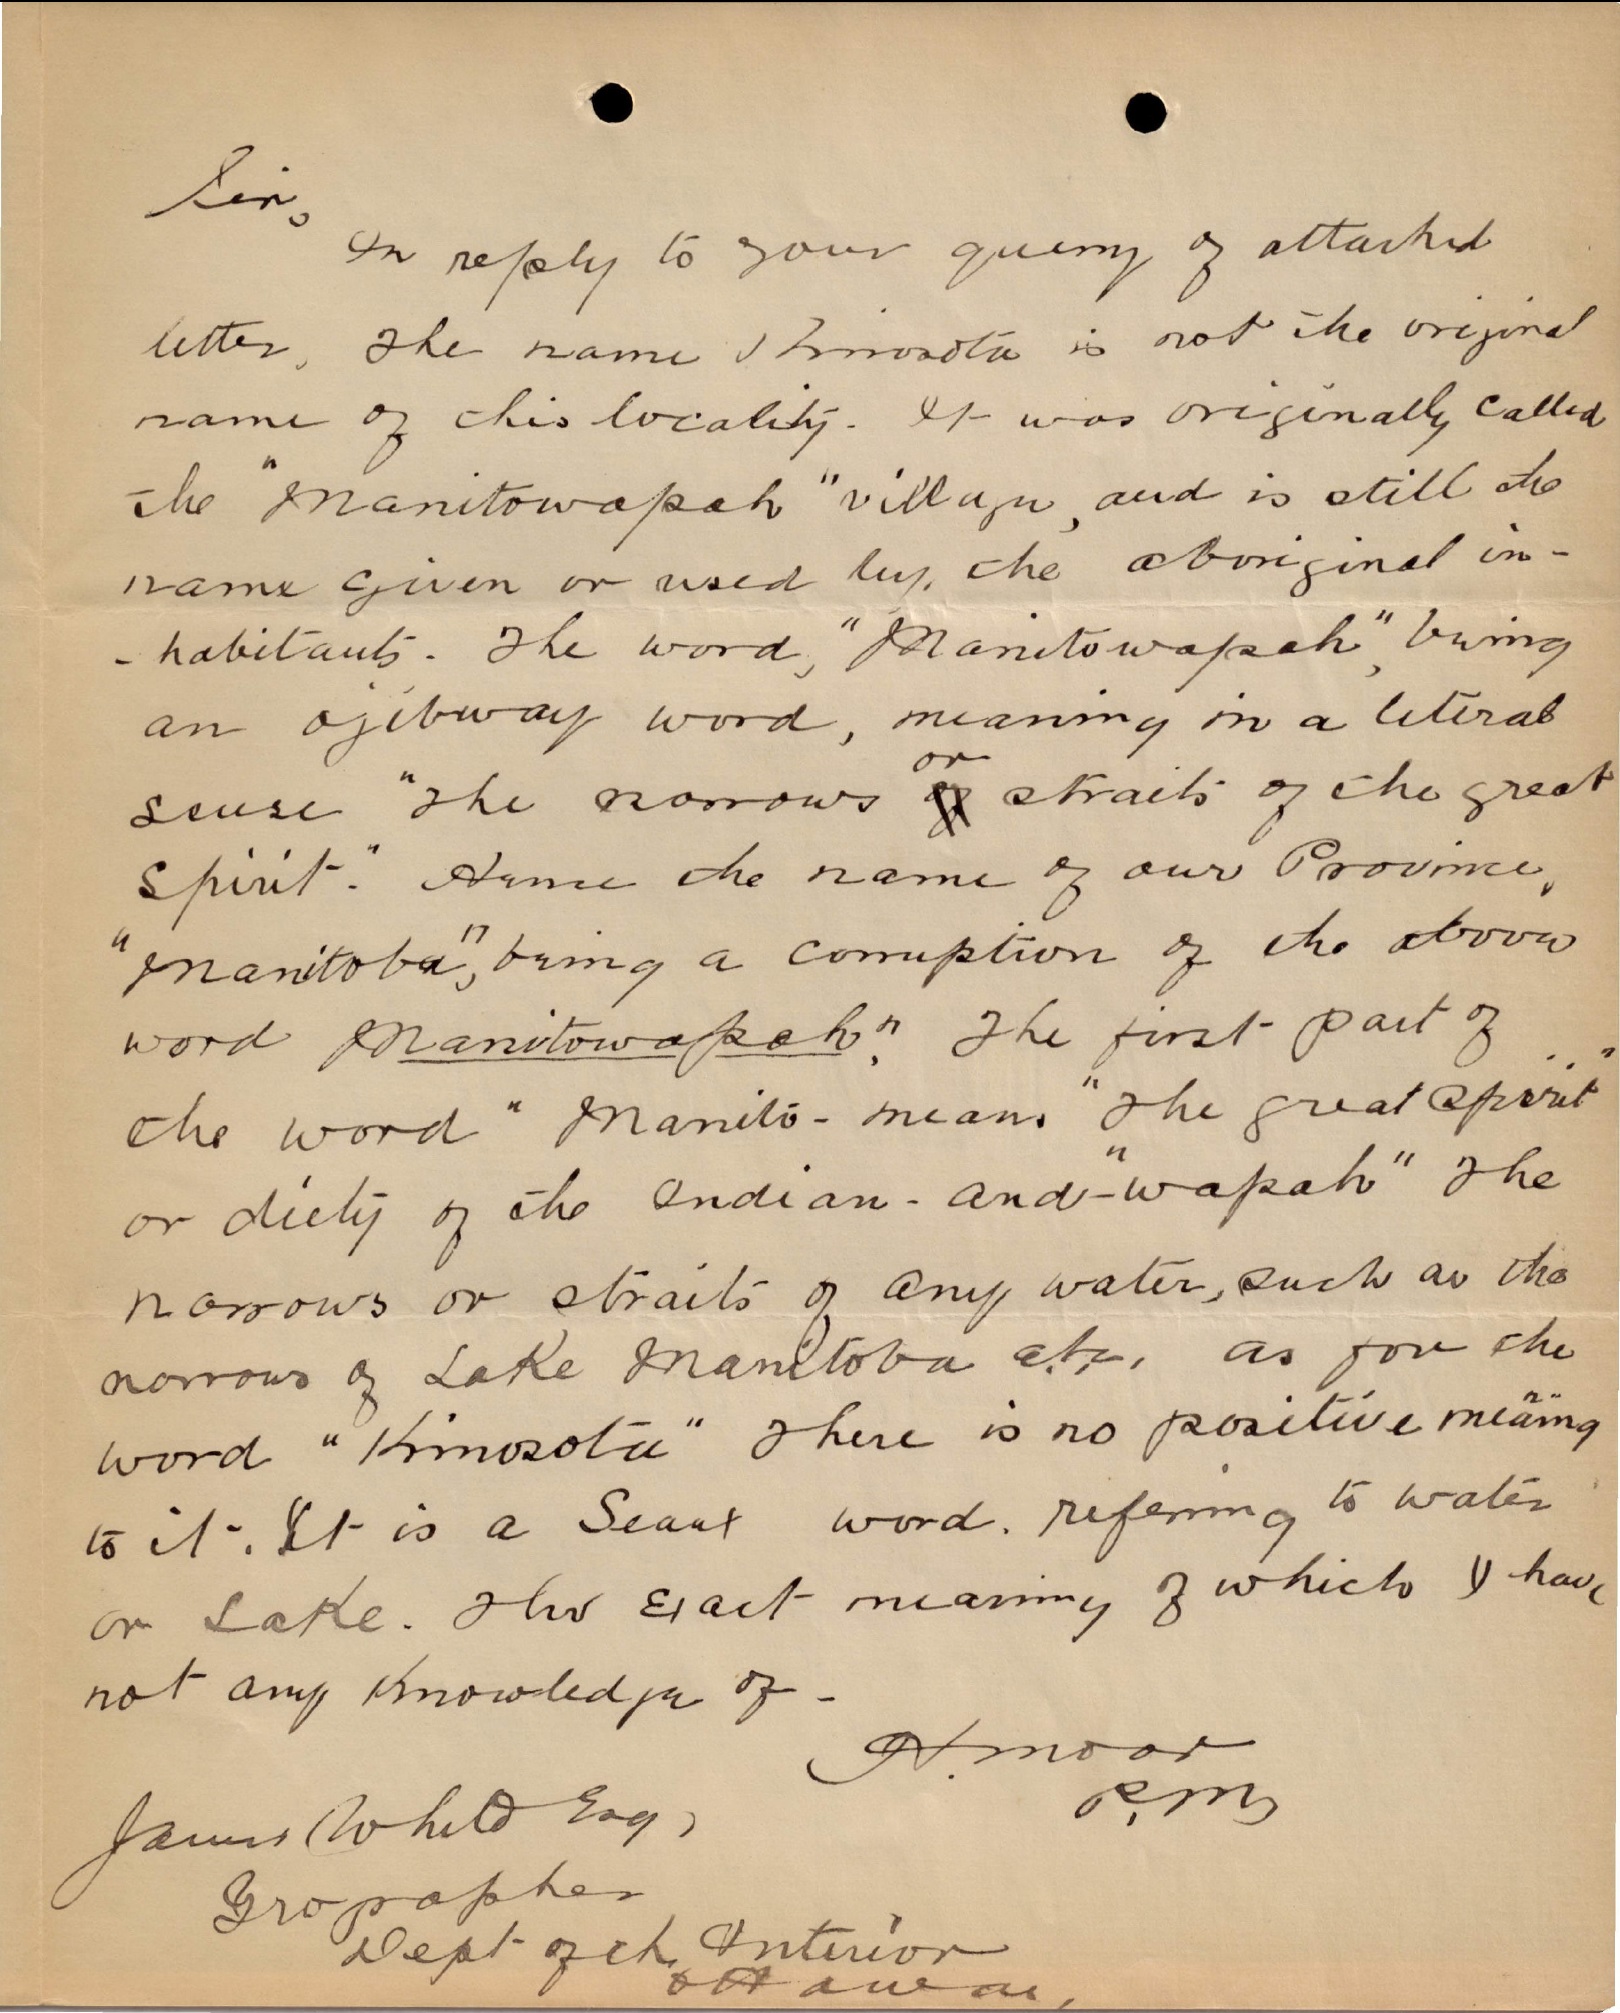 Sir,
In reply to your query of attached
letter, The name Kinosota is not the original
name of this locality. It was originally called
the "Manitowapah" village, and is still the
name given or used by, the aboriginal in-
-habitants. The word, "Manitowapah", being
an ojibway word, meaning in a literal
sense "The narrows or straits of the great
spirit." Hence the name of our Province,
"Manitoba", being a corruption of the above
word Manitowapah". The first part of
the word " Manito - means "The great spirit"
or diety of the Indian - and - "wapah" The
narrows or straits of any water, such as the
narrows of Lake Manitoba etc, as for the
word "Kinosota" There is no positive meaning
to it. It is a Seaux word. refering to water
or Lake. The Exact meaning of which I have
not any Knowledge of -
H. Moar
P.M,
James White Esq,
Grographer
Dept of th Interior
Ottawa,